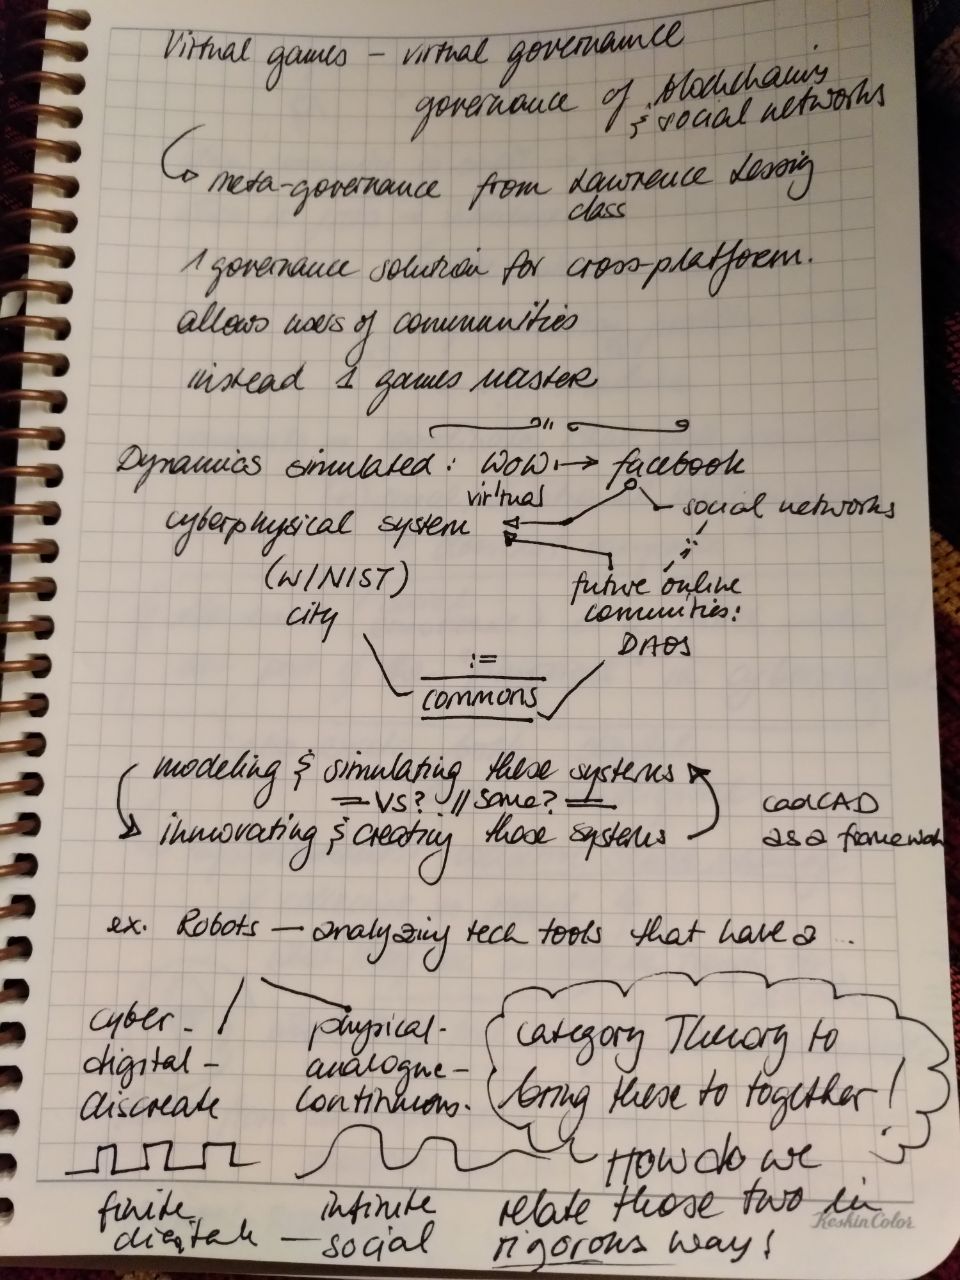 Virtual games – virtual governance
governance of blockchains
& social networks
meta-governance from Lawrence Lessig
class
1 governance solution for cross-platform.
allows users of communities
instead 1 games master
Dynamics simulated: WoW → facebook
virtual
social networks
cyberphysical system
(w/NIST)
city
future online
comunities:
DAOs
:=
commons
modeling & simulating these systems
= vs? // same? =
innovating & creating those systems
cadCAD
as a framework
ex. Robots — analyzing tech tools that have a ...
cyber-
digital-
discreate
physical-
analogue-
continuous.
category Theory to
bring these to together!
How do we
relate those two in
rigorous way!
finite
infinite
— social
KeskinColor